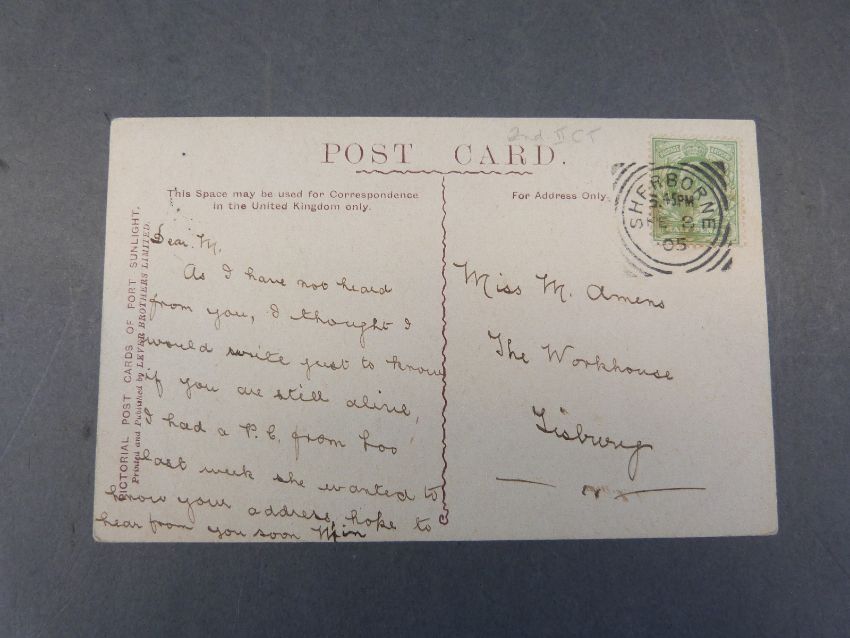 2nd. II CT
POST CARD.
This Space may be used for Correspondence
in the United Kingdom only.
For Address Only.
SHERBORNE
3.45PM
05
PICTORIAL POST CARDS OF PORT SUNLIGHT.
Printed and Published by LEVER BROTHERS LIMITED.
Dear M.
As I have not heard
from you, I thought I
would write just to know
if you are still alive,
I had a P.C. from Loo
last week she wanted to
know your address, hope to
hear from you soon Min
Miss M. Amens
The Workhouse
Tisbury